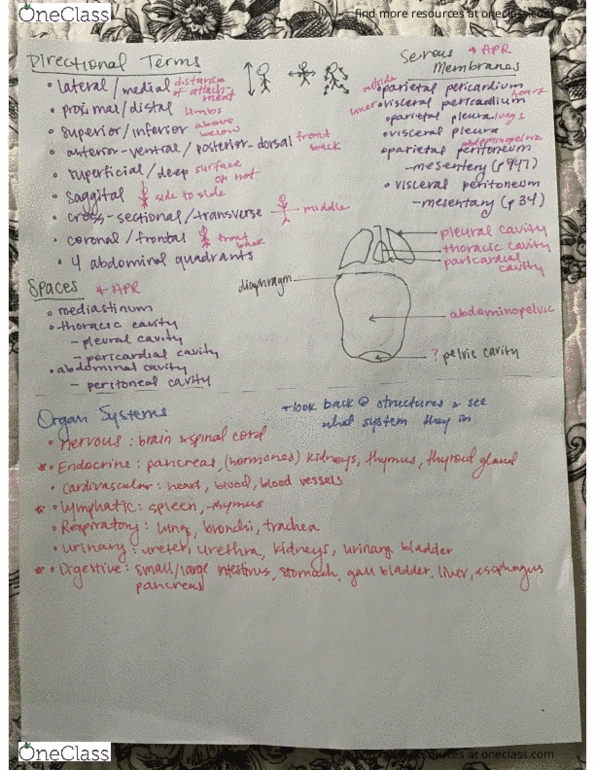 OneClass
find more resources at oneclass.com
Directional Terms
• lateral/medial distance of attachment
• proximal/distal limbs
• superior/inferior above below
• anterior-ventral/posterior-dorsal front back
• superficial/deep surface or not
• Saggital side to side
• cross-sectional/transverse middle
• coronal/frontal front back
• 4 abdominal quadrants
Serous Membranes * APR
outside • parietal pericardium
inner • visceral pericardium heart
• parietal pleura lungs
• visceral pleura
abdominopelvic
• parietal peritoneum
- mesentery (p 947)
• visceral peritoneum
- mesentary (p 34)
pleural cavity
thoracic cavity
paricardial cavity
diaphragm
abdominopelvic
? pelvic cavity
Spaces * APR
• mediastinum
• thoracic cavity
- pleural cavity
- pericardial cavity
• abdominal cavity
- peritoneal cavity
Organ Systems
* look back @ structures & see
what system they in
• Nervous: brain & spinal cord
* • Endocrine: pancreas, (hormones) kidneys, thymus, thyroid gland
• Cardivascular: heart, blood, blood vessels
* • Lymphatic: spleen, thymus
• Respiratory: lung, bronchi, trachea
• Urinary: ureter, urethra, kidneys, urinary bladder
* • Digestive: small/large intestines, stomach, gall bladder, liver, esophungus
pancreas
OneClass
resources at oneclass.com